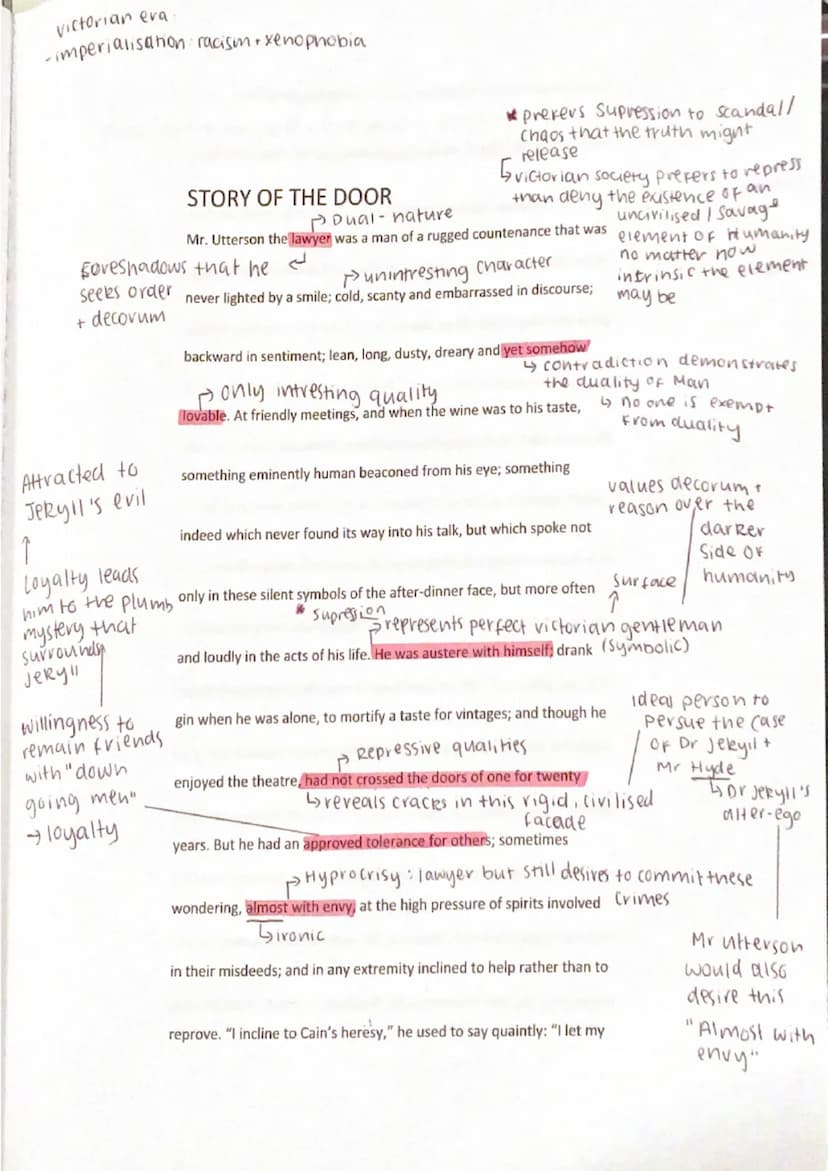 victorian era
- imperialisation: racism + xenophobia
* prefers supression to scandal/
chaos that the truth might
release
↳ victorian society prefers to repress
than deny the existence of an
uncivilised / savage
element of Humanity
no matter how
intrinsic the element
may be
STORY OF THE DOOR
Dual-nature
Mr. Utterson the lawyer was a man of a rugged countenance that was
Foreshadows that he
seeks order
+ decorum
unintresting character
never lighted by a smile; cold, scanty and embarrassed in discourse;
backward in sentiment; lean, long, dusty, dreary and yet somehow
↳ contradiction demonstrates
the duality of Man
↳ no one is exempt
from duality
only intresting quality
lovable. At friendly meetings, and when the wine was to his taste,
something eminently human beaconed from his eye; something
Attracted to
Jekyll's evil
values decorum +
reason over the
darker
side of
humanity
indeed which never found its way into his talk, but which spoke not
Loyalty leads
him to the plumb
mystery that
surrounds
Jekyll
only in these silent symbols of the after-dinner face, but more often
surface
* supression
represents perfect victorian gentleman
(symbolic)
and loudly in the acts of his life. He was austere with himself; drank
gin when he was alone, to mortify a taste for vintages; and though he
willingness to
remain friends
with "down
going men"
→ loyalty
Ideal person to
persue the case
of Dr Jekyll +
Mr Hyde
↳ Dr Jekyll's
alter-ego
Repressive qualities
enjoyed the theatre, had not crossed the doors of one for twenty
↳ reveals cracks in this rigid, civilised
facade
years. But he had an approved tolerance for others; sometimes
Hyprocrisy: lawyer but still desires to commit these
crimes
wondering, almost with envy, at the high pressure of spirits involved
↳ ironic
Mr Utterson
would also
desire this
"Almost with
envy"
in their misdeeds; and in any extremity inclined to help rather than to
reprove. “I incline to Cain’s heresy,” he used to say quaintly: “I let my